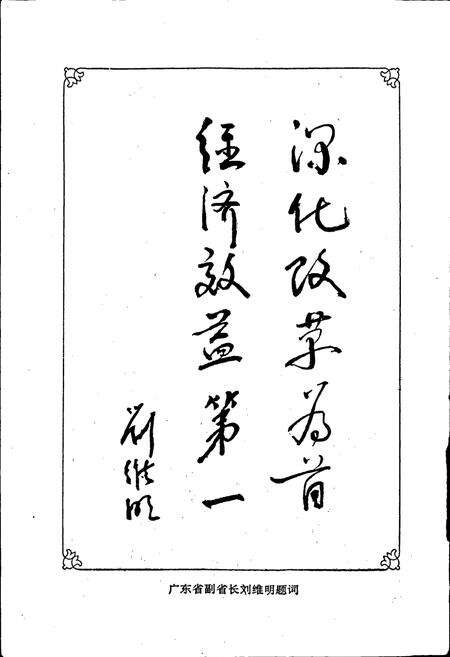 深化改革为首
经济效益第一
刘维明
广东省副省长刘维明题词